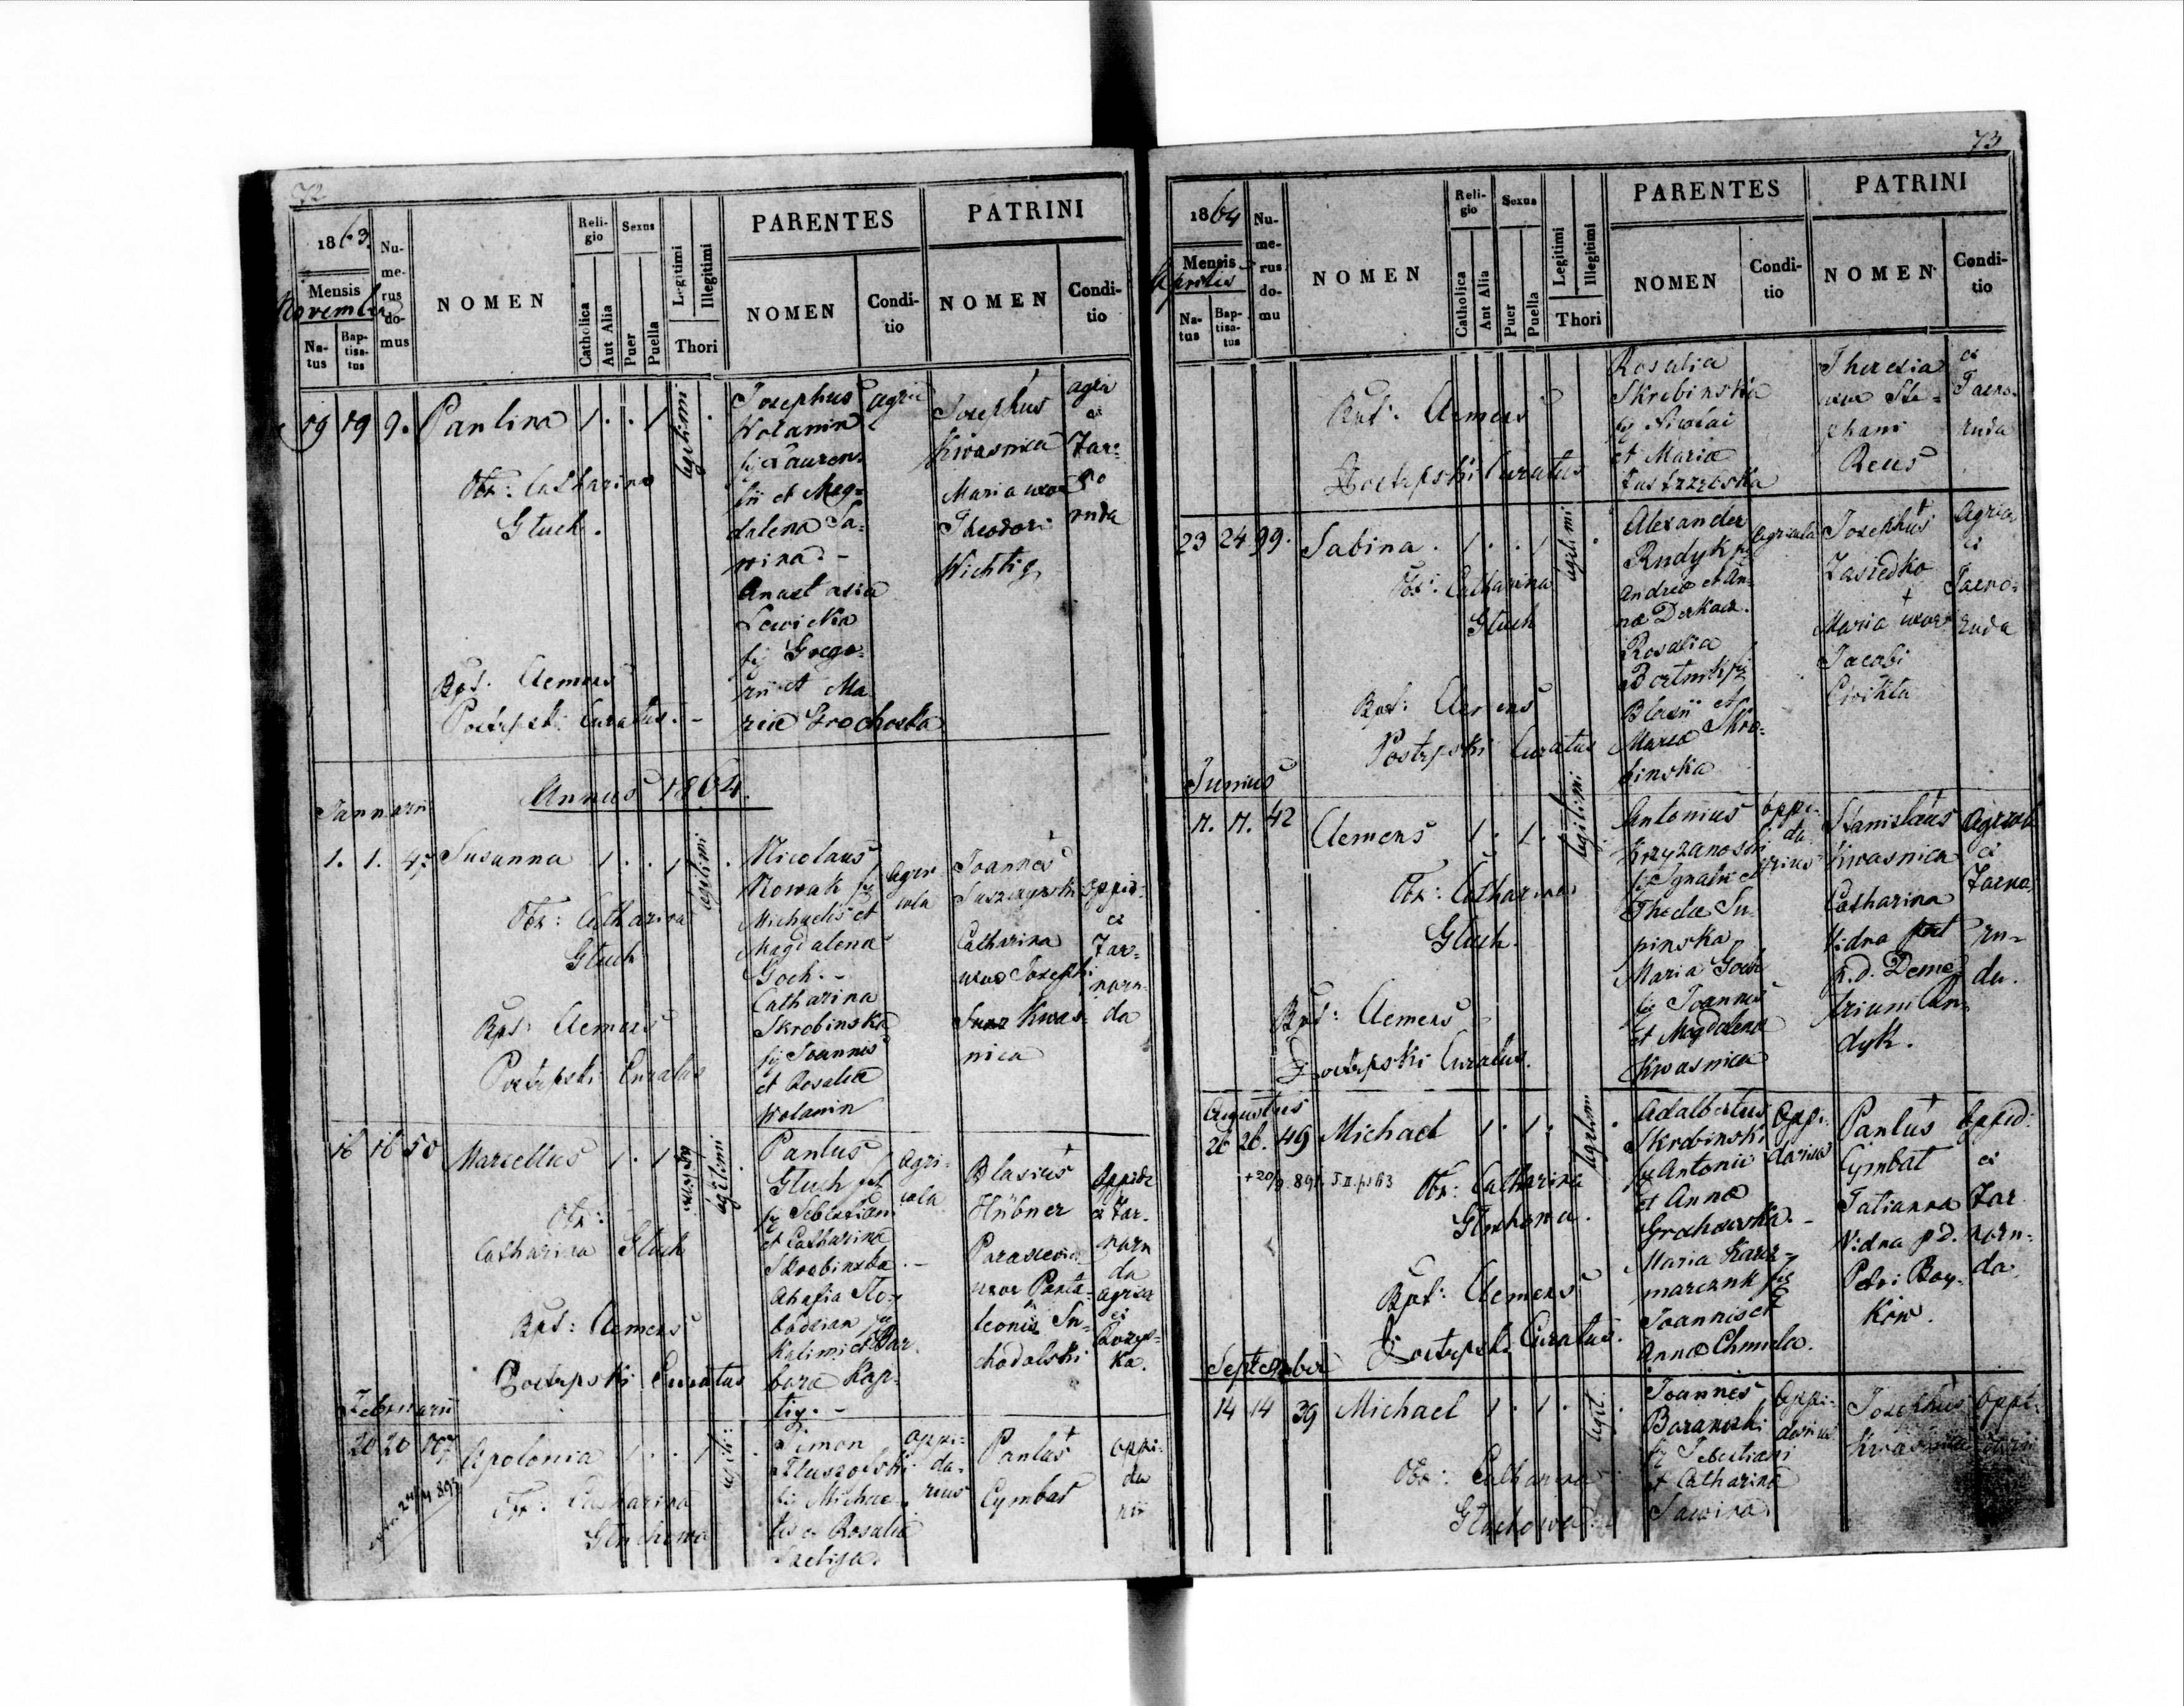 72
1863.
Mensis
Novembris
Na-
tus
Bap-
tisa-
tus
Nu-
me-
rus
do-
mus
NOMEN
Reli-
gio
Catholica
Aut Alia
Sexus
Puer
Puella
Legitimi
Illegitimi
Thori
PARENTES
NOMEN
Condi-
tio
PATRINI
NOMEN
Condi-
tio
19 19 9. Paulina 1 . . 1 legitimi .
Obs: Catharina
Głuch.
Bpt: Clemens
Curatus. -
Josephus
Wolanin
fil Lauren-
tii et Mag-
dalena Sa-
wina. -
Anastasia
Lewicka
fil Grego-
rii et Ma
ria Grochoska
agri
Josephus
Kwasnica
Maria uxor
Theodori
Wichtig
agri
ex
Tar-
no
ruda
Annus 1864.
Januarii
1. 1. 47 Susanna 1 . . 1 legitimi .
Obs: Catharina
Głuch
Bpt: Clemens
Curatus
Nicolaus
Nowak fil
Michaelis et
Magdalena
Goch. -
Catharina
Skrobinska
fil Joannis
et Rosalia
Wolanin
agri-
cola
Joannes
Catharina
uxor Josephi
Kwas-
nica
oppid-
ex
Tar-
noru-
da
16 16 50 Marcellus 1 . 1 legitimi .
Obs:
Catharina Głuch
Bpt: Clemens
Curatus
Paulus
Głuch
fil Sebastiani
et Catharina
Skrobinska. -
Ahafia Slo-
bodzian fil
et Bar-
bara Kap-
tiy. -
agri-
cola
Blasius
Hübner
Parascevia
uxor Panta-
leonis Su-
chodolski
oppid
ex Tar-
noru
da
ex
ka.
Februarii
20 20 107 Apolonia 1 . . 1 legiti: .
Obs: Catharina
Głuchowa
Simon
fil Michae-
lis et Rosalia
Szeliga.
oppi-
da-
rius
Paulus
Cymbał
oppi-
da
rii
73
1864
Mensis
Aprilis
Na-
tus
Bap-
tisa-
tus
Nu-
me-
rus
do-
mu
NOMEN
Reli-
gio
Catholica
Aut Alia
Sexus
Puer
Puella
Legitimi
Illegitimi
Thori
PARENTES
NOMEN
Condi-
tio
PATRINI
NOMEN
Condi-
tio
Bpt: Clemens
Curatus
Rosalia
Skrobinska
fil Nicolai
et Maria
Theresia
uxor Ste-
phani
Reus
ex
Tarno-
ruda
23 24 99. Sabina . 1 . . 1 legitimi .
Obs: Catharina
Głuch
Bpt: Clemens
Curatus
Alexander
Rudyk fil
Andrea et An-
na Derkacz.
Rosalia
Bortnik fil
Blasii et
Maria Skro-
binska
agricola
Josephus
Zasiedko
Maria uxor
Jacobi
Cwikla
Agricola
ex
Tarno-
ruda
Junius
17. 17. 42 Clemens 1 . 1 . legitimi
Obs: Catharina
Głuch.
Bpt: Clemens
Curatus.
Antonius
Krzyzanoski
fil Ignatii et
Thecla Su-
pinska
Maria Goch
fil Joannes
et Magdalena
Kwasnica
oppi-
da
rius
Stanislaus
Kwasnica
Catharina
Vidua
p.d. Deme-
trium An-
dyk.
Agricol
ex
Tarno
ru-
da.
Augustus
26 26. 49 Michael 1 . 1 . legitimi .
Obs: Catharina
Głuchowa.
Bpt: Clemens
Curatus.
Adalbertus
Skrobinski
fil Antonii
et Anna
Grochowska. -
Maria Karcz-
marczuk fil
Joannis et
Anna Chmiela.
Oppi-
darius
Paulus
Cymbał
Tatianna
Vidua p.d.
Petri Boy-
ków.
Oppid:
ex
Tar
noru-
da
September
14 14 39 Michael 1 . 1 . legit. .
Obs: Catharina
Głuchowa.
Joannes
Baranoski
fil Sebastiani
et Catharina
Sawina.
oppi-
darius
Josephus
Kwasnica
oppi-
darii